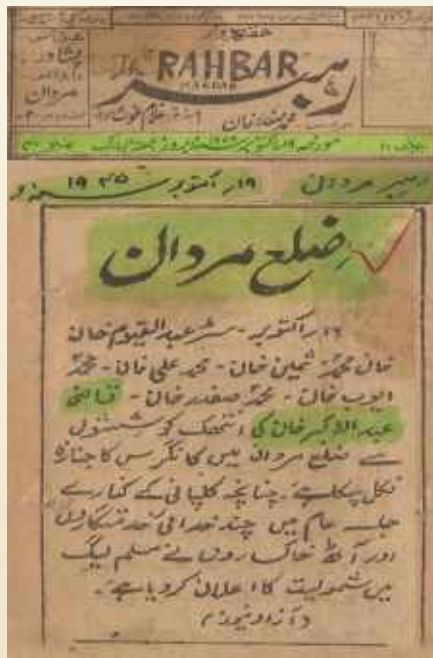 ہفتہ وار
پشاور
مردان
رہبر
RAHBAR
MARDAN
رہبر مردان
۱۹ر اکتوبر ۱۹۴۵
ضلع مردان
۱۶ر اکتوبر - مسٹر عبدالقیوم خان
خان محمد ثمین خان - محمد علی خان - محمد
ایوب خان - محمد صفدر خان - قاضی
عبدالاکبر خان کی انتھک کوششوں
سے ضلع مردان میں کانگرس کا جنازہ
نکل چکا ہے۔ چنانچہ کلپانی کے کنارے
جلسہ عام میں چند خدائی خدمتگاروں
اور آٹھ خاکساروں نے مسلم لیگ
میں شمولیت کا اعلان کر دیا ہے۔